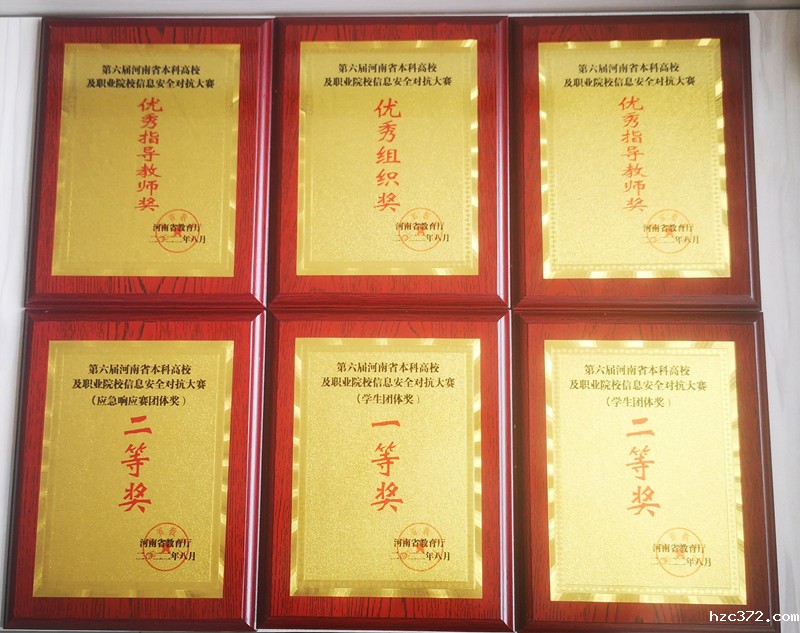 第六届河南省本科高校
及职业院校信息安全对抗大赛
优秀指导教师奖
河南省教育厅
二〇二二年八月
第六届河南省本科高校
及职业院校信息安全对抗大赛
优秀组织奖
河南省教育厅
二〇二二年八月
第六届河南省本科高校
及职业院校信息安全对抗大赛
优秀指导教师奖
河南省教育厅
二〇二二年八月
第六届河南省本科高校
及职业院校信息安全对抗大赛
（应急响应赛团体奖）
二等奖
河南省教育厅
二〇二二年八月
第六届河南省本科高校
及职业院校信息安全对抗大赛
（学生团体奖）
一等奖
河南省教育厅
二〇二二年八月
第六届河南省本科高校
及职业院校信息安全对抗大赛
（学生团体奖）
二等奖
河南省教育厅
二〇二二年八月
hzc372.com